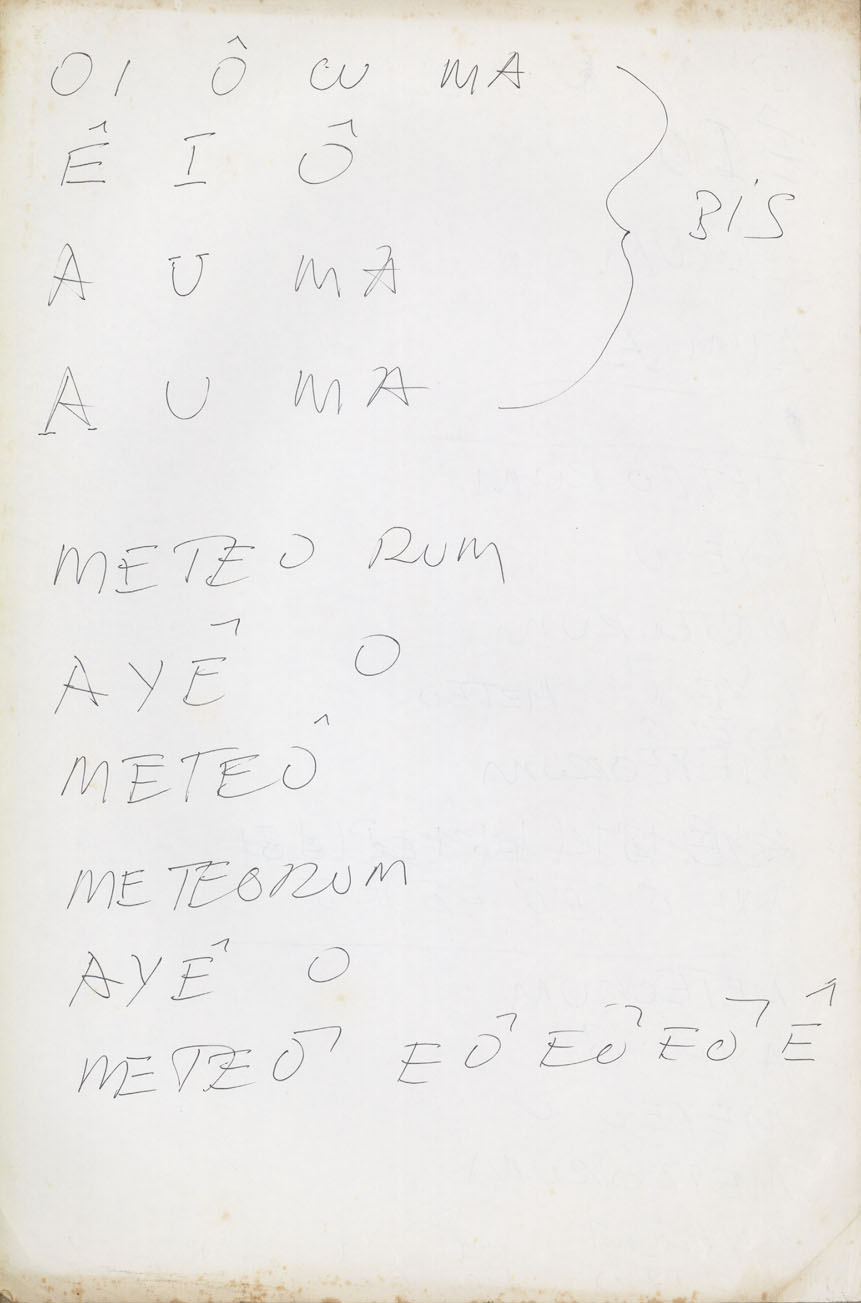 OI Ô CU MA
Ê I Ô
A U MA
A U MA
BIS
METEO RUM
AYÊ O
METEÔ
METEORUM
AYÊ O
METEÔ EÔ EÔ EÔ Ê